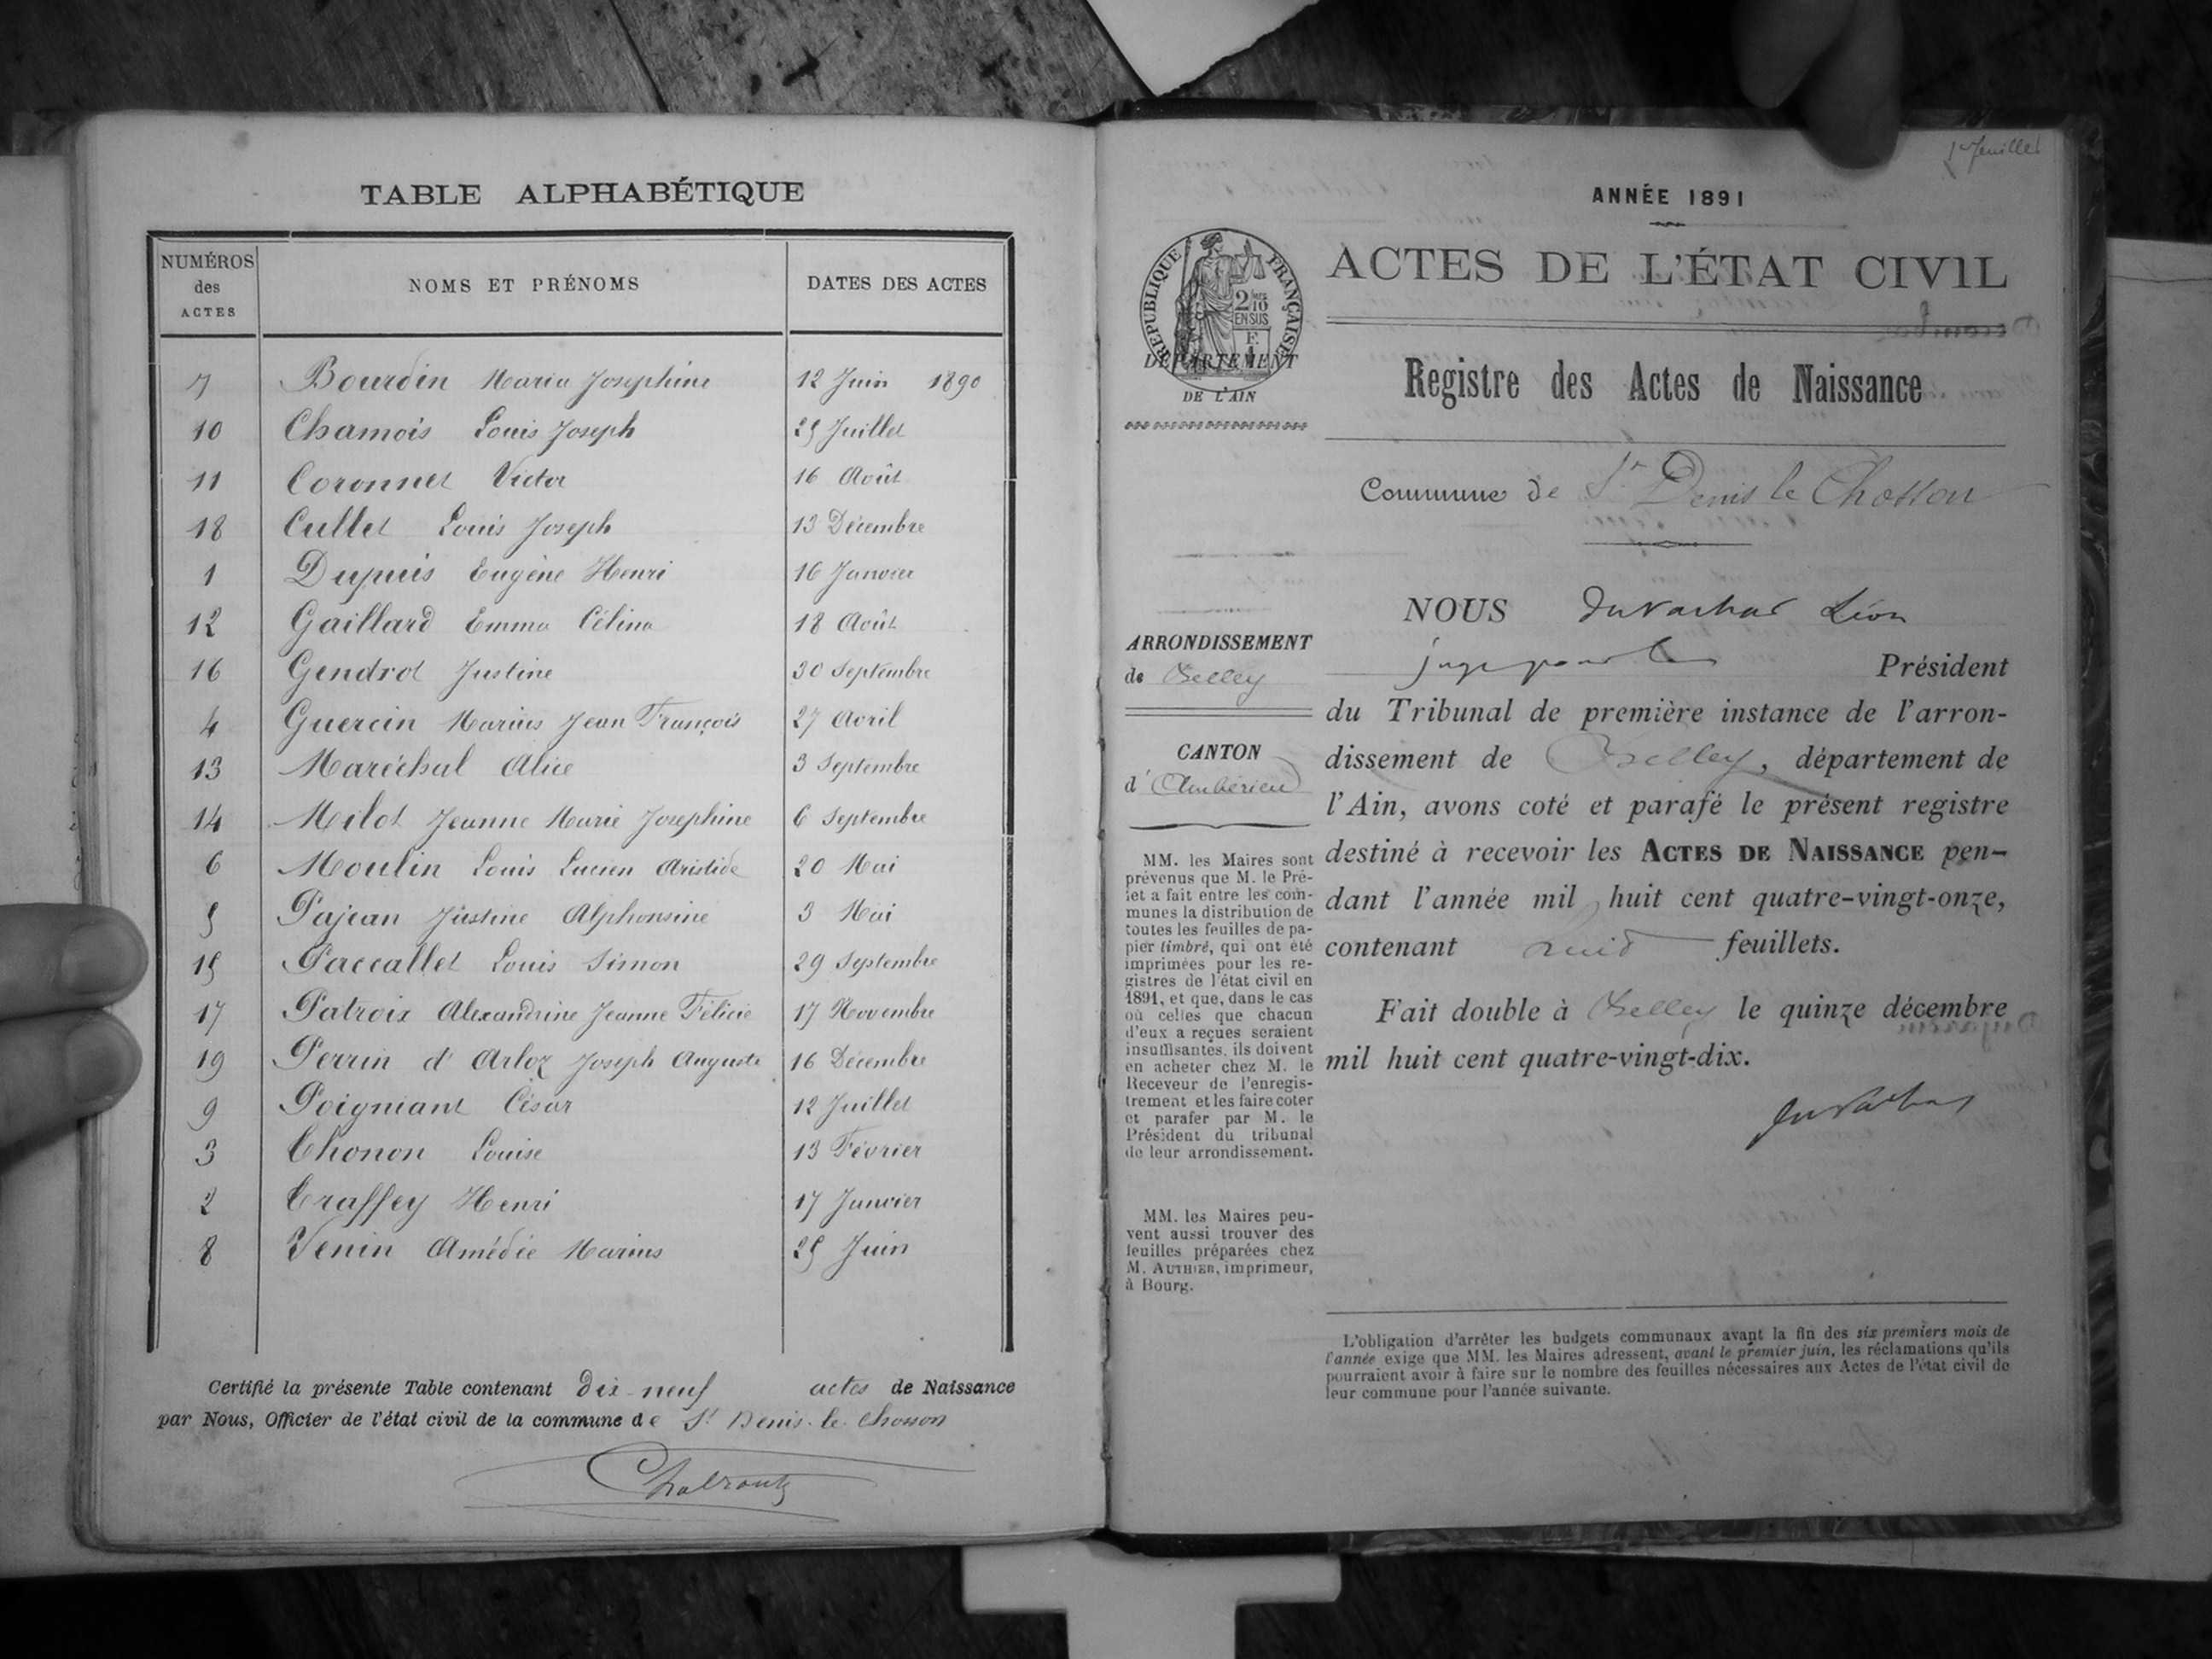 TABLE ALPHABÉTIQUE
NUMÉROS des ACTES | NOMS ET PRÉNOMS | DATES DES ACTES
7 Bourdin Maria Joséphine 12 Juin 1890
10 Chamois Louis Joseph 25 Juillet
11 Coronnet Victor 16 Août
18 Cullet Louis Joseph 13 Décembre
1 Dupuis Eugène Henri 16 Janvier
12 Gaillard Emma Célina 18 Août
16 Gendrot Justine 30 Septembre
4 Guercin Marius Jean François 27 Avril
13 Maréchal Alice 3 Septembre
14 Milot Jeanne Marie Joséphine 6 Septembre
6 Moulin Louis Lucien Aristide 20 Mai
5 Pajean Justine Alphonsine 3 Mai
15 Paccallet Louis Simon 29 Septembre
17 Patroix Alexandrine Jeanne Félicie 17 Novembre
19 Perrin d'Arloz Joseph Auguste 16 Décembre
9 Poigniant César 12 Juillet
3 Thonon Louise 13 Février
2 Traffey Henri 17 Janvier
8 Venin Amédée Marius 25 Juin
Certifié la présente Table contenant dix-neuf actes de Naissance
par Nous, Officier de l'état civil de la commune de St Denis-le-Chosson
1er feuillet
ANNÉE 1891
ACTES DE L'ÉTAT CIVIL
RÉPUBLIQUE FRANÇAISE
2/10 EN SUS
DÉPARTEMENT
DE L'AIN
Registre des Actes de Naissance
Commune de St Denis le Chosson
ARRONDISSEMENT
de Belley
CANTON
d'Ambérieu
MM. les Maires sont
prévenus que M. le Pré-
fet a fait entre les com-
munes la distribution de
toutes les feuilles de pa-
pier timbré, qui ont été
imprimées pour les re-
gistres de l'état civil en
1891, et que, dans le cas
où celles que chacun
d'eux a reçues seraient
insuffisantes, ils doivent
en acheter chez M. le
Receveur de l'enregis-
trement et les faire coter
et parafer par M. le
Président du tribunal
de leur arrondissement.
MM. les Maires peu-
vent aussi trouver des
feuilles préparées chez
M. AUTHIER, imprimeur,
à Bourg.
NOUS Duvachat Léon
Président
du Tribunal de première instance de l'arron-
dissement de Belley, département de
l'Ain, avons coté et parafé le présent registre
destiné à recevoir les ACTES DE NAISSANCE pen-
dant l'année mil huit cent quatre-vingt-onze,
contenant huit feuillets.
Fait double à Belley le quinze décembre
mil huit cent quatre-vingt-dix.
Duvachat
L'obligation d'arrêter les budgets communaux avant la fin des six premiers mois de
l'année exige que MM. les Maires adressent, avant le premier juin, les réclamations qu'ils
pourraient avoir à faire sur le nombre des feuilles nécessaires aux Actes de l'état civil de
leur commune pour l'année suivante.